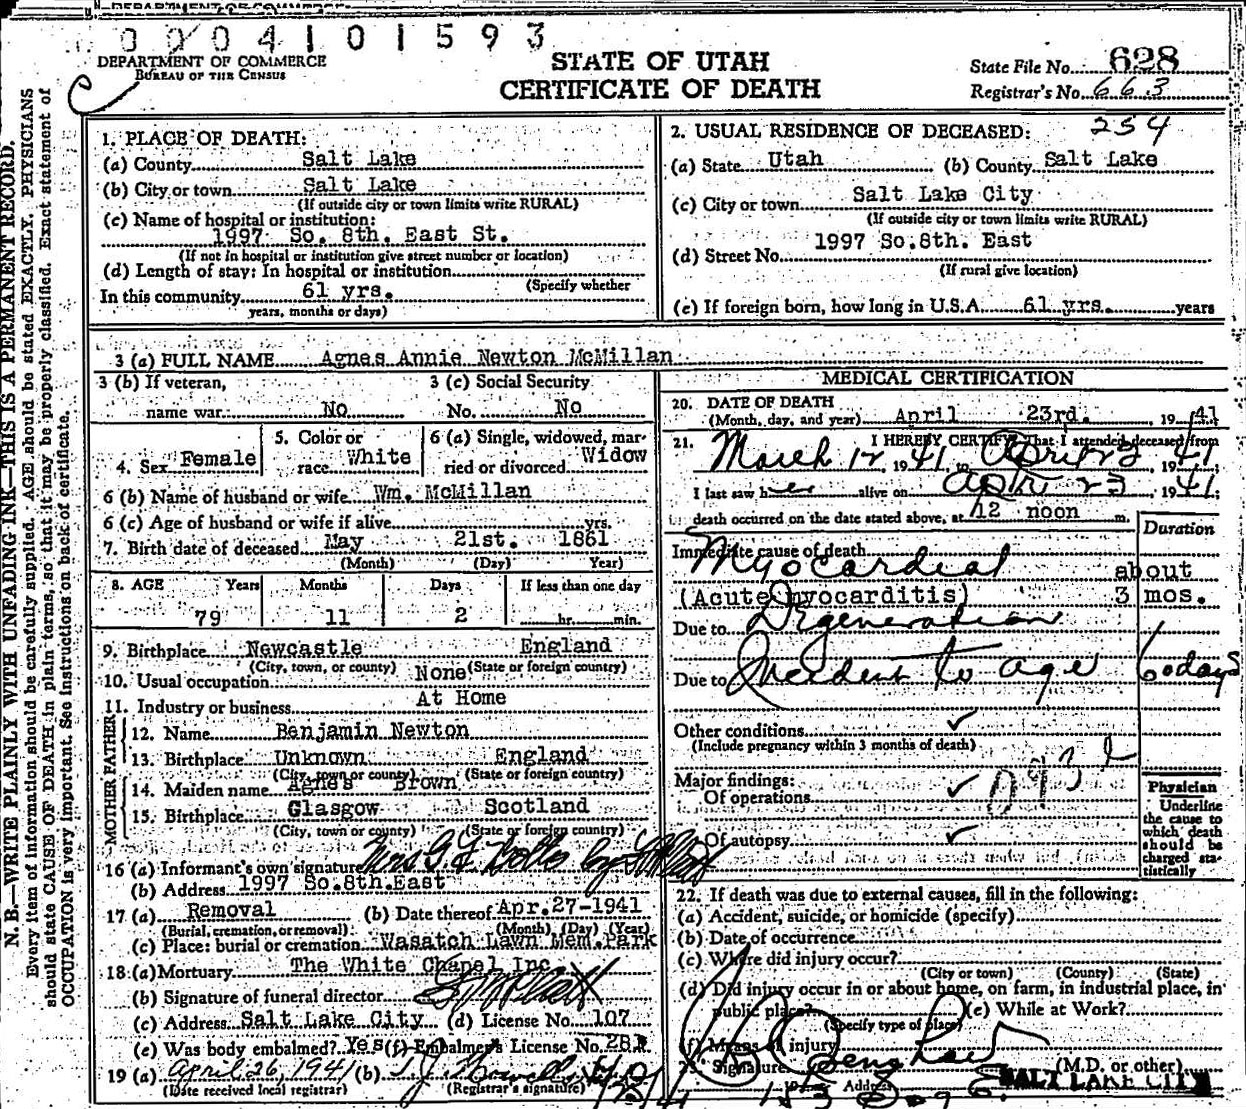 DEPARTMENT OF COMMERCE
0004101593
DEPARTMENT OF COMMERCE
BUREAU OF THE CENSUS
STATE OF UTAH
CERTIFICATE OF DEATH
State File No. 628
Registrar's No. 663
254
N. B.—WRITE PLAINLY WITH UNFADING INK—THIS IS A PERMANENT RECORD.
Every item of information should be carefully supplied. AGE should be stated EXACTLY. PHYSICIANS
should state CAUSE OF DEATH in plain terms, so that it may be properly classified. Exact statement of
OCCUPATION is very important. See instructions on back of certificate.
1. PLACE OF DEATH:
(a) County Salt Lake
(b) City or town Salt Lake
(If outside city or town limits write RURAL)
(c) Name of hospital or institution:
1997 So. 8th. East St.
(If not in hospital or institution give street number or location)
(d) Length of stay: In hospital or institution
(Specify whether
In this community 61 yrs.
years, months or days)
2. USUAL RESIDENCE OF DECEASED:
(a) State Utah (b) County Salt Lake
(c) City or town Salt Lake City
(If outside city or town limits write RURAL)
(d) Street No. 1997 So.8th. East
(If rural give location)
(e) If foreign born, how long in U.S.A. 61 yrs. years
3 (a) FULL NAME Agnes Annie Newton McMillan
3 (b) If veteran,
name war: No
3 (c) Social Security
No. No
4. Sex Female
5. Color or
race White
6 (a) Single, widowed, mar-
ried or divorced Widow
6 (b) Name of husband or wife Wm. McMillan
6 (c) Age of husband or wife if alive yrs.
7. Birth date of deceased May 21st. 1861
(Month) (Day) Year)
8. AGE Years Months Days If less than one day
79 11 2 hr. min.
9. Birthplace Newcastle England
(City, town, or county) (State or foreign country)
10. Usual occupation None
11. Industry or business At Home
FATHER
12. Name Benjamin Newton
13. Birthplace Unknown England
(City, town or county) (State or foreign country)
MOTHER
14. Maiden name Agnes Brown
15. Birthplace Glasgow Scotland
(City, town or county) (State or foreign country)
16 (a) Informant's own signature Mrs G by
(b) Address 1997 So.8th.East
17 (a) Removal (b) Date thereof Apr.27-1941
(Burial, cremation, or removal) (Month) (Day) (Year)
(c) Place: burial or cremation Wasatch Lawn Mem.Park
18 (a) Mortuary The White Chapel Inc
(b) Signature of funeral director
(c) Address Salt Lake City (d) License No. 107
(e) Was body embalmed? Yes (f) Embalmer's License No.
19 (a) April 26, 1941 (b)
(Date received local registrar) (Registrar's signature)
MEDICAL CERTIFICATION
20. DATE OF DEATH
(Month, day, and year) April 23rd. 1941
21. I HEREBY CERTIFY, That I attended deceased from
March 12 1941 to April 23, 1941
I last saw her alive on April 23, 1941;
death occurred on the date stated above, at 12 noon m.
Duration
Immediate cause of death
Myocardial about
(Acute myocarditis) 3 mos.
Due to Degeneration
Due to Incident to age 60 days
Other conditions
(Include pregnancy within 3 months of death)
Major findings:
Of operations
Of autopsy
Physician
Underline
the cause to
which death
should be
charged sta-
tistically
22. If death was due to external causes, fill in the following:
(a) Accident, suicide, or homicide (specify)
(b) Date of occurrence
(c) Where did injury occur?
(City or town) (County) (State)
(d) Did injury occur in or about home, on farm, in industrial place, in
public place? (e) While at Work?
(Specify type of place)
(f) Means of injury
23. Signature (M.D. or other)
Address SALT LAKE CITY